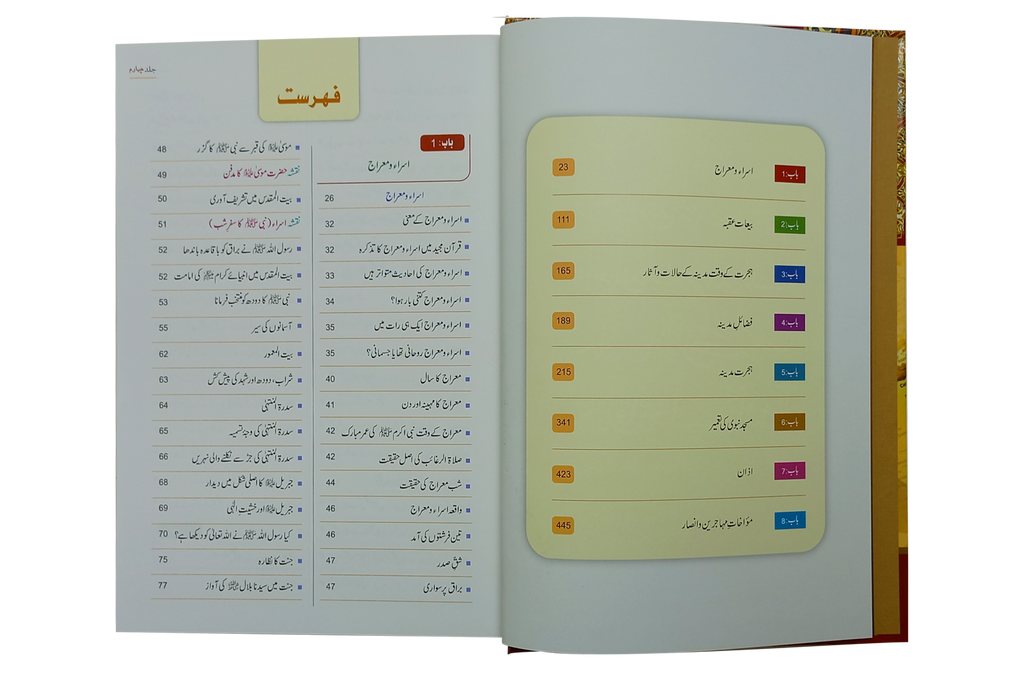 باب:1 اسراء و معراج 23
باب:2 بیعات عقبہ 111
باب:3 ہجرت کے وقت مدینہ کے حالات و آثار 165
باب:4 فضائل مدینہ 189
باب:5 ہجرت مدینہ 215
باب:6 مسجد نبوی کی تعمیر 341
باب:7 اذان 423
باب:8 مؤاخاتِ مہاجرین و انصار 445
جلد چہارم
فہرست
باب: 1
اسراء و معراج
اسراء و معراج 26
اسراء و معراج کے معنی 32
قرآن مجید میں اسراء و معراج کا تذکرہ 32
اسراء و معراج کی احادیث متواتر ہیں 33
اسراء و معراج کتنی بار ہوا؟ 34
اسراء و معراج ایک ہی رات میں 35
اسراء و معراج روحانی تھا یا جسمانی؟ 35
معراج کا سال 40
معراج کا مہینہ اور دن 41
معراج کے وقت نبی اکرم ﷺ کی عمر مبارک 42
صلاۃ الرغائب کی اصل حقیقت 42
شب معراج کی حقیقت 44
واقعہ اسراء و معراج 46
تین فرشتوں کی آمد 46
شق صدر 47
براق پر سواری 47
موسیٰ علیہ السلام کی قبر سے نبی ﷺ کا گزر 48
نقشہ حضرت موسیٰ علیہ السلام کا مدفن 49
بیت المقدس میں تشریف آوری 50
نقشہ اسراء (نبی ﷺ کا سفرِ شب) 51
رسول اللہ ﷺ نے براق کو باقاعدہ باندھا 52
بیت المقدس میں انبیائے کرام علیہم السلام کی امامت 52
نبی ﷺ کا دودھ کو منتخب فرمانا 53
آسمانوں کی سیر 55
بیت المعمور 62
شراب، دودھ اور شہد کی پیش کش 63
سدرۃ المنتہیٰ 64
سدرۃ المنتہیٰ کی وجۂ تسمیہ 65
سدرۃ المنتہیٰ کی جڑ سے نکلنے والی نہریں 66
جبریل علیہ السلام کا اصلی شکل میں دیدار 68
جبریل علیہ السلام اور خشیتِ الٰہی 69
کیا رسول اللہ ﷺ نے اللہ تعالیٰ کو دیکھا ہے؟ 70
جنت کا نظارہ 75
جنت میں سیدنا بلال رضی اللہ عنہ کی آواز 77